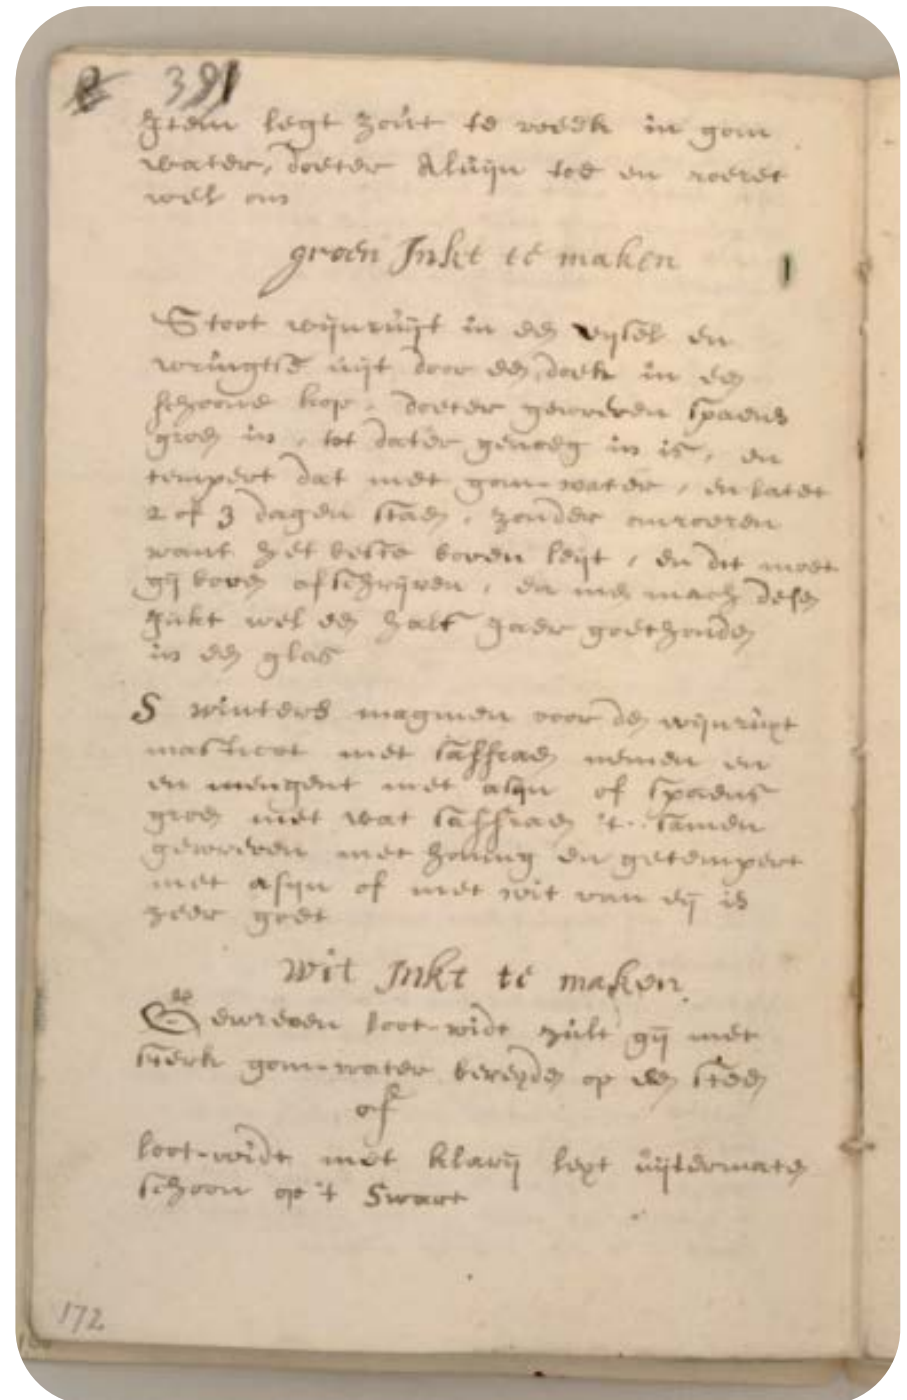 391
Item legt zout te week in gom
water, doeter Aluijn toe en roeret
wel om
groen Inkt te maken
Stoot wijnruijt in een vijsel en
wringtse uijt door een doek in een
schoone kop, doeter gewreven spaens
groen in, tot dater genoeg in is, en
tempert dat met gom-water, en latet
2 of 3 dagen staen, zonder omroeren
want het beste boven leijt, en dit moet
gij boven afschrijven, en men mach desen
Inkt wel een half Jaer goethouden
in een glas
S winters magmen voor den wijnruijt
masticot met saffraen nemen en
en mengent met asijn of spaens
groen met wat saffraen 't samen
gewreven met honing en getempert
met asijn of met wit van eij is
zeer goet
wit Inkt te maken
Gewreven loot-widt zult gij met
sterk gom-water bereyden op een steen
of
loot-widt met klarij lept uijtermaten
schoon op 't Swart
172